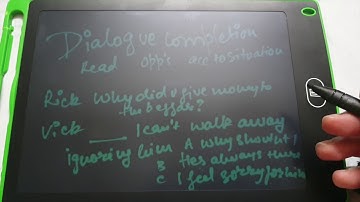 Dialogue completion
Read opp's acc to situation
Rick Why did u give money to
the beggar?
Vick ____ I can't walk away
ignoring him A why shouln't I
B He's always there
C I feel sorry for him